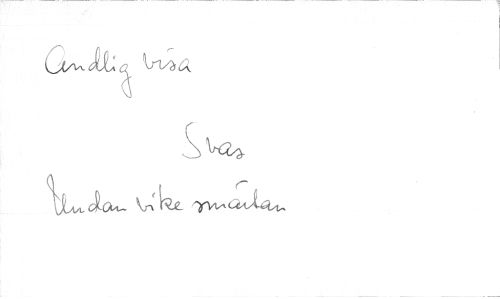 Andlig visa
Svar
Undan vike smärtan